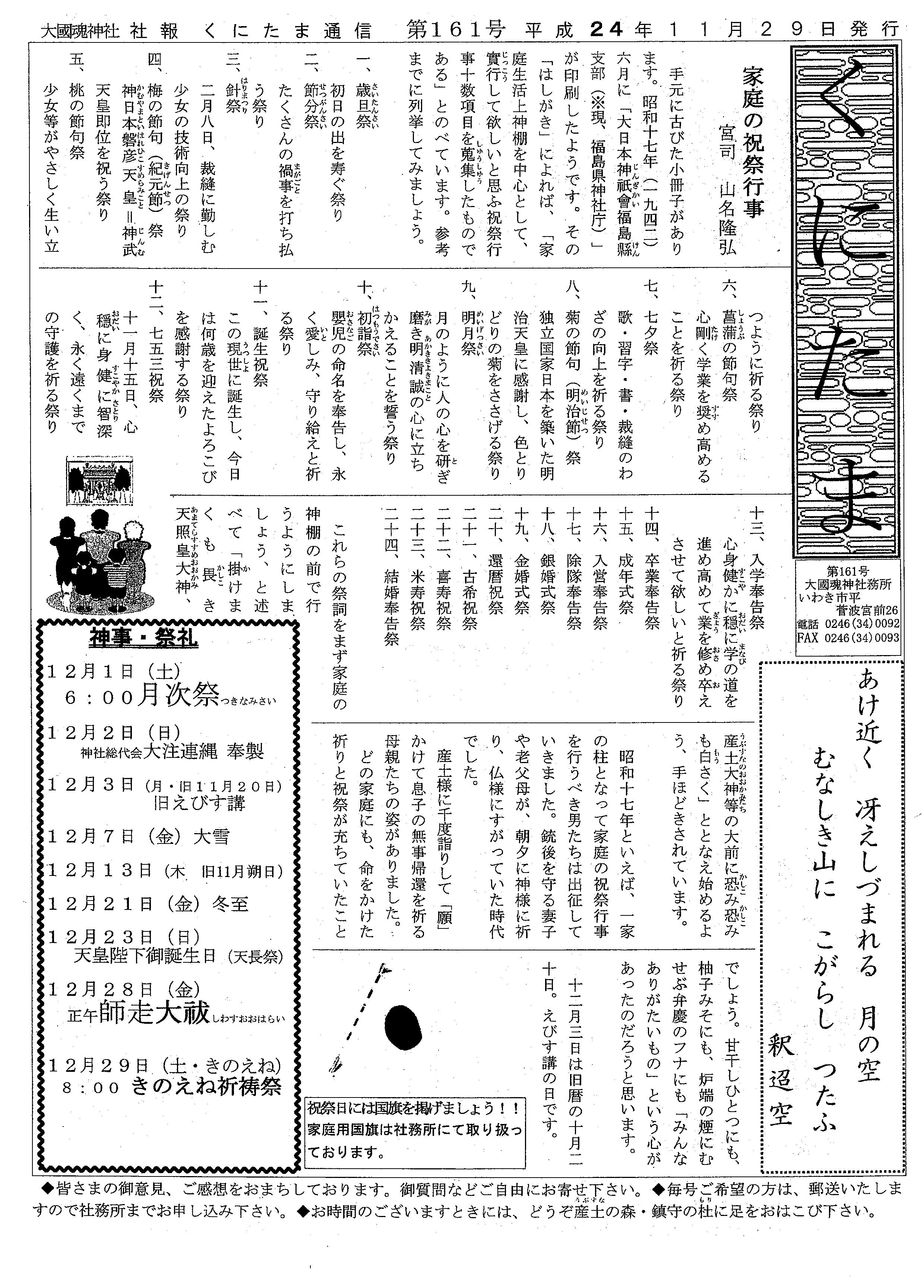 大國魂神社 社報 くにたま通信 第161号 平成24年11月29日発行
くにたま
第161号
大國魂神社務所
いわき市平
菅波宮前26
電話 0246(34)0092
FAX 0246(34)0093
家庭の祝祭行事
宮司 山名隆弘
手元に古びた小冊子があり
ます。昭和十七年（一九四二）
六月に「大日本神祇會福島縣
支部（※現、福島県神社庁）」
が印刷したようです。その
「はしがき」によれば、「家
庭生活上神棚を中心として、
實行して欲しいと思ふ祝祭行
事十数項目を蒐集したもので
ある」とのべています。参考
までに列挙してみましょう。
一、歳旦祭
初日の出を寿ぐ祭り
二、節分祭
たくさんの禍事を打ち払
う祭り
三、針祭
二月八日、裁縫に勤しむ
少女の技術向上の祭り
四、梅の節句（紀元節）祭
神日本磐彦天皇＝神武
天皇即位を祝う祭り
五、桃の節句祭
少女等がやさしく生い立
つように祈る祭り
六、菖蒲の節句祭
心剛く学業を奨め高める
ことを祈る祭り
七、七夕祭
歌・習字・書・裁縫のわ
ざの向上を祈る祭り
八、菊の節句（明治節）祭
独立国家日本を築いた明
治天皇に感謝し、色とり
どりの菊をささげる祭り
九、明月祭
月のように人の心を研ぎ
磨き明清誠の心に立ち
かえることを誓う祭り
十、初詣祭
嬰児の命名を奉告し、永
く愛しみ、守り給えと祈
る祭り
十一、誕生祝祭
この現世に誕生し、今日
は何歳を迎えたよろこび
を感謝する祭り
十二、七五三祝祭
十一月十五日、心
穏に身健に智深
く、永く遠くまで
の守護を祈る祭り
十三、入学奉告祭
心身健かに穏に学の道を
進め高めて業を修め卒え
させて欲しいと祈る祭り
十四、卒業奉告祭
十五、成年式祭
十六、入営奉告祭
十七、除隊奉告祭
十八、銀婚式祭
十九、金婚式祭
二十、還暦祝祭
二十一、古希祝祭
二十二、喜寿祝祭
二十三、米寿祝祭
二十四、結婚奉告祭
これらの祭詞をまず家庭の
神棚の前で行
うようにしま
しょう、と述
べて「掛けま
くも畏き
天照皇大神、
産土大神等の大前に恐み恐み
も白さく」ととなえ始めるよ
う、手ほどきされています。
昭和十七年といえば、一家
の柱となって家庭の祝祭行事
を行うべき男たちは出征して
いきました。銃後を守る妻子
や老父母が、朝夕に神様に祈
り、仏様にすがっていた時代
でした。
産土様に千度詣りして「願」
かけて息子の無事帰還を祈る
母親たちの姿がありました。
どの家庭にも、命をかけた
祈りと祝祭が充ちていたこと
でしょう。甘干しひとつにも、
柚子みそにも、炉端の煙にむ
せぶ弁慶のフナにも「みんな
ありがたいもの」という心が
あったのだろうと思います。
十二月三日は旧暦の十月二
十日。えびす講の日です。
あけ近く 冴えしづまれる 月の空
むなしき山に こがらし つたふ
釈迢空
神事・祭礼
12月1日（土）
6：00月次祭つきなみさい
12月2日（日）
神社総代会大注連縄 奉製
12月3日（月・旧11月20日）
旧えびす講
12月7日（金）大雪
12月13日（木 旧11月朔日）
12月21日（金）冬至
12月23日（日）
天皇陛下御誕生日（天長祭）
12月28日（金）
正午師走大祓しわすおおはらい
12月29日（土・きのえね）
8：00 きのえね祈祷祭
祝祭日には国旗を掲げましょう！！
家庭用国旗は社務所にて取り扱っ
ております。
◆皆さまの御意見、ご感想をおまちしております。御質問などご自由にお寄せ下さい。◆毎号ご希望の方は、郵送いたしま
すので社務所までお申し込み下さい。◆お時間のございますときには、どうぞ産土の森・鎮守の杜に足をおはこび下さい。